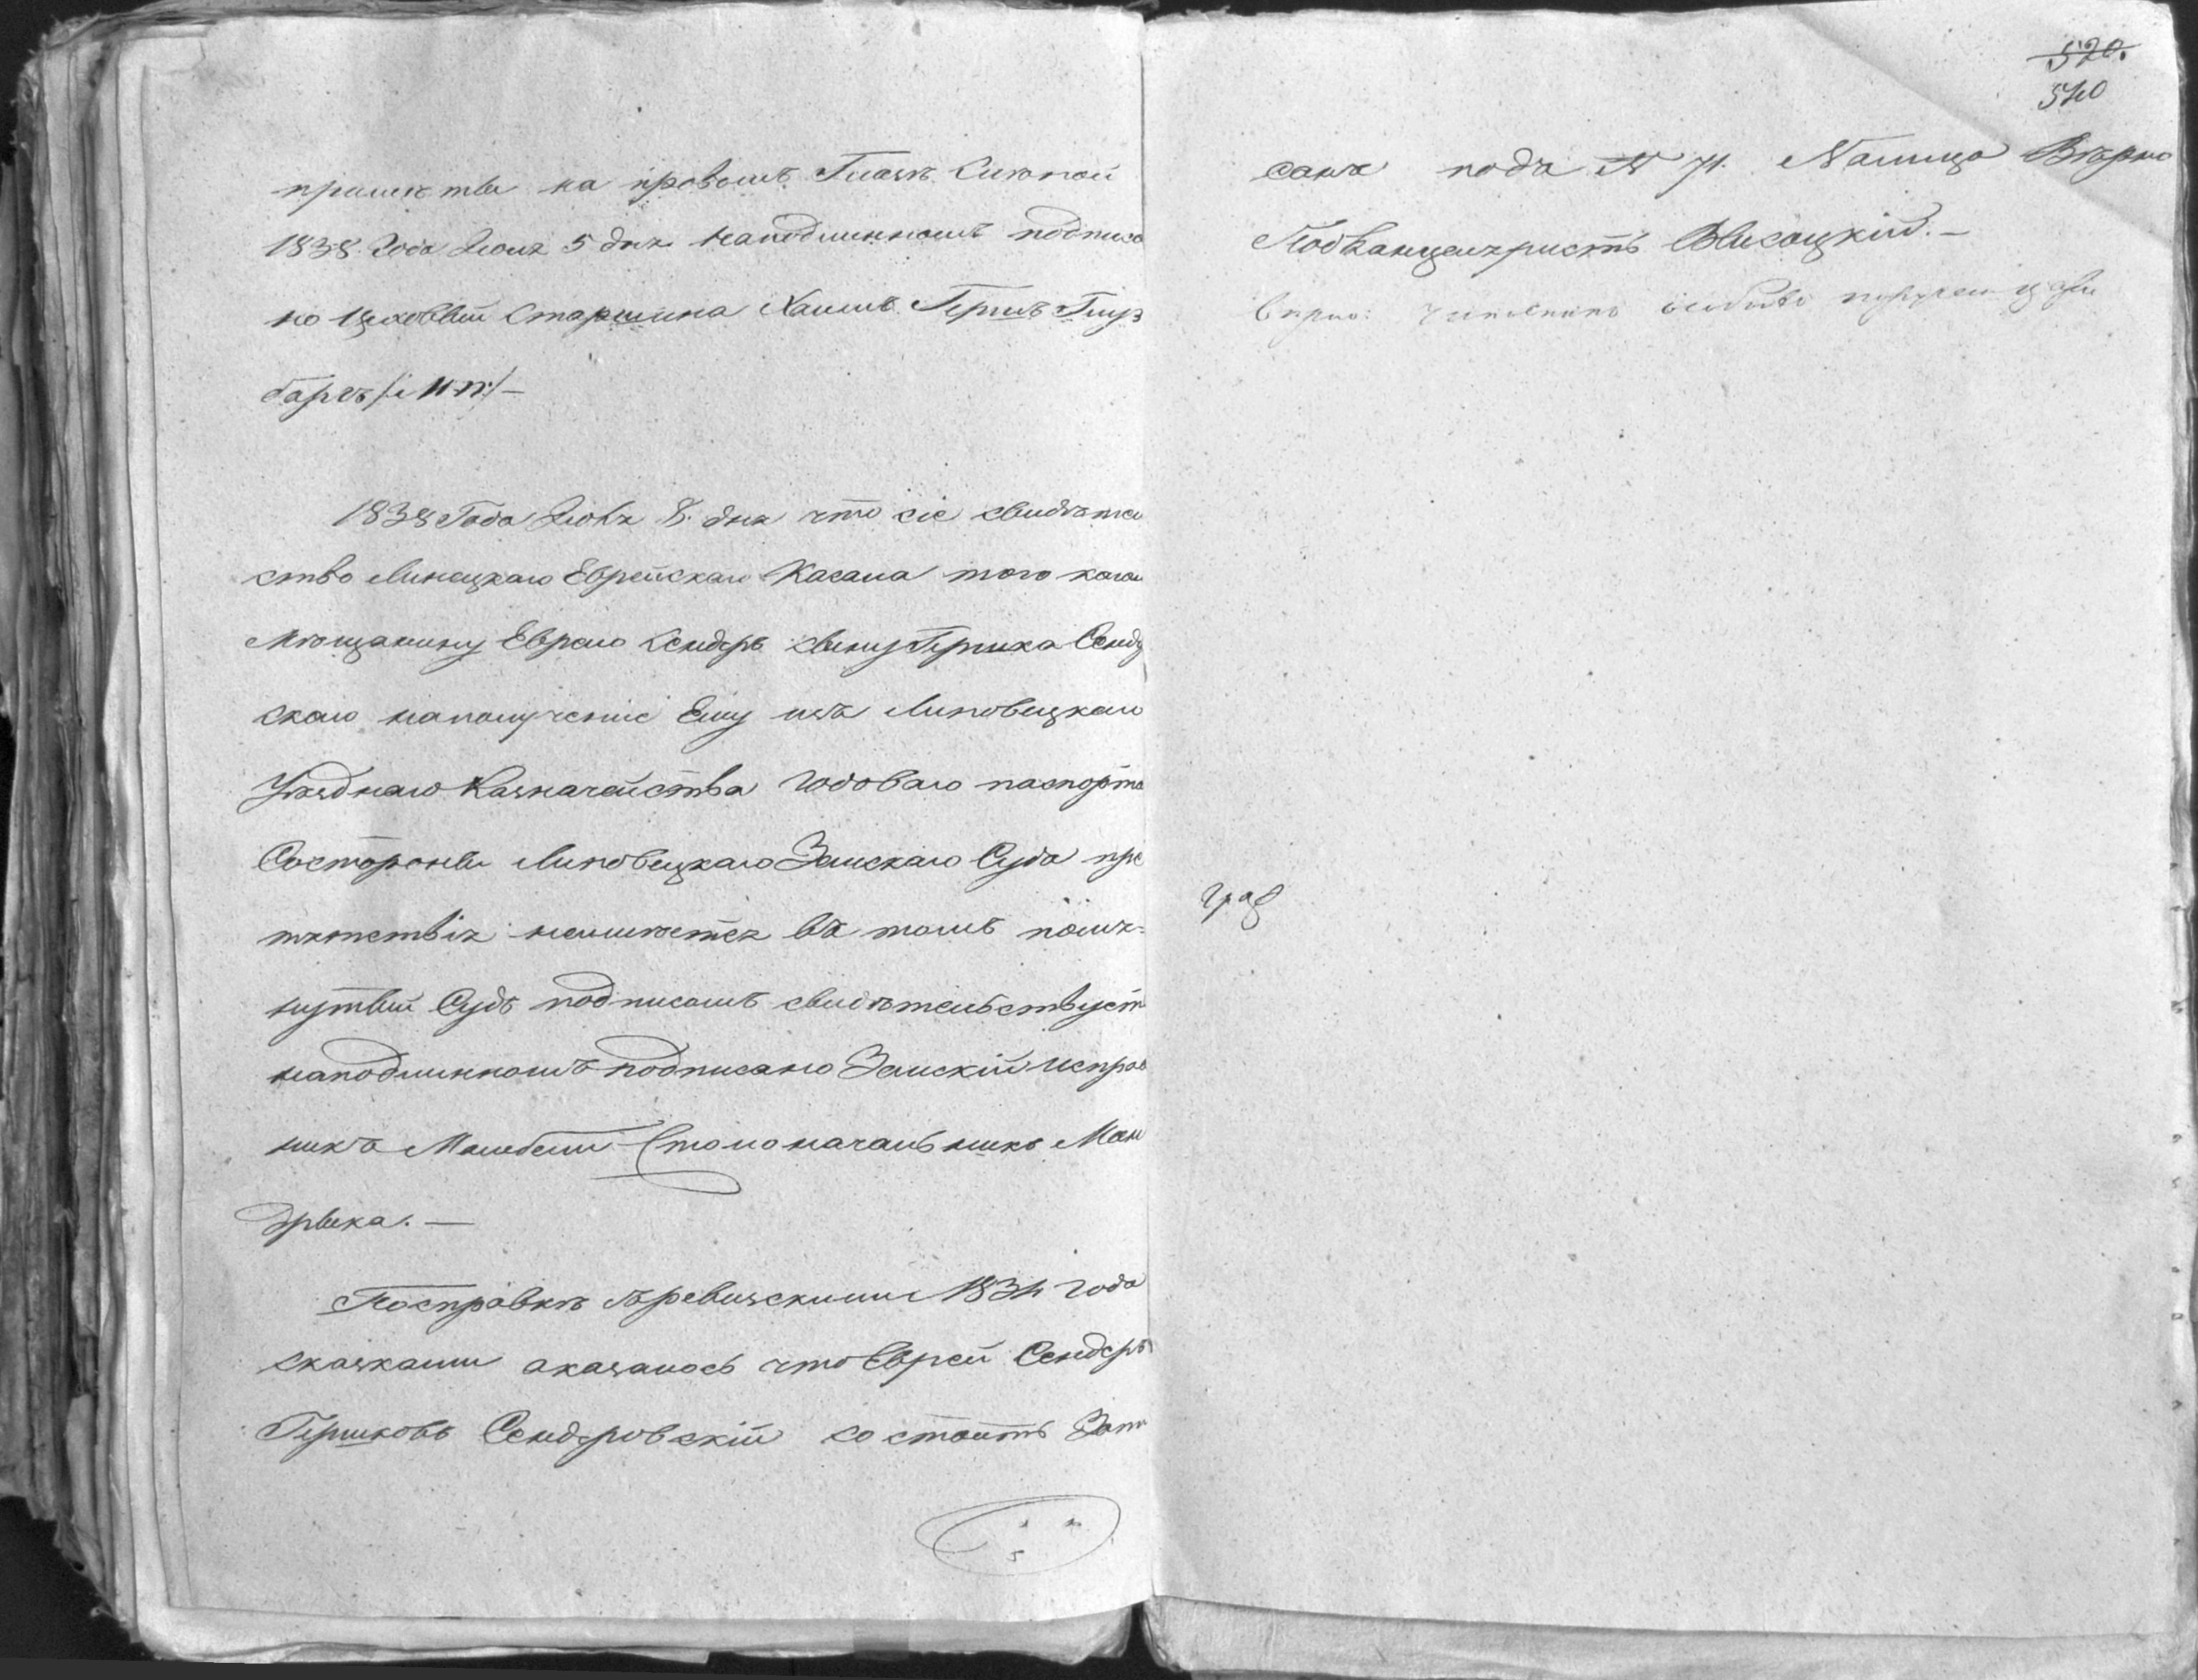 примѣты на правомъ Глазѣ Сиюпой
1838. Года Июля 5 дня наподлинномъ подписа
но Цеховый Старшина Хаимъ Гершъ Гинз
баргъ /: М. П: / —
1838 Года Июля 8. дня что сіе свидѣтел
ство Линецкаго Еврейскаго Кагала того кагал
Мѣщанину Еврею Сендеръ сыну Гершка Сенде
скаго наполученіе Ему изъ Липовецкаго
Уѣзднаго Казначейства годоваго паспорта
Состороны Липовецкаго Земскаго Суда пре
пятствія неимѣется въ томъ помя=
нутый Судъ подписомъ свидѣтельствуетъ
наподлинномъ подписано Земскій Исправ
никъ Столоначальникъ Ман
дрыка. —
Посправкѣ съревизскими 1834 года
сказками аказалось что Еврей Сендеръ
Гершковъ Сендеровскій состоитъ Запи
520.
540
санъ подъ № 71. Вѣрно
Подканцеляристъ Висоцкій. —
Вѣрно: чиновникъ особыхъ порученій